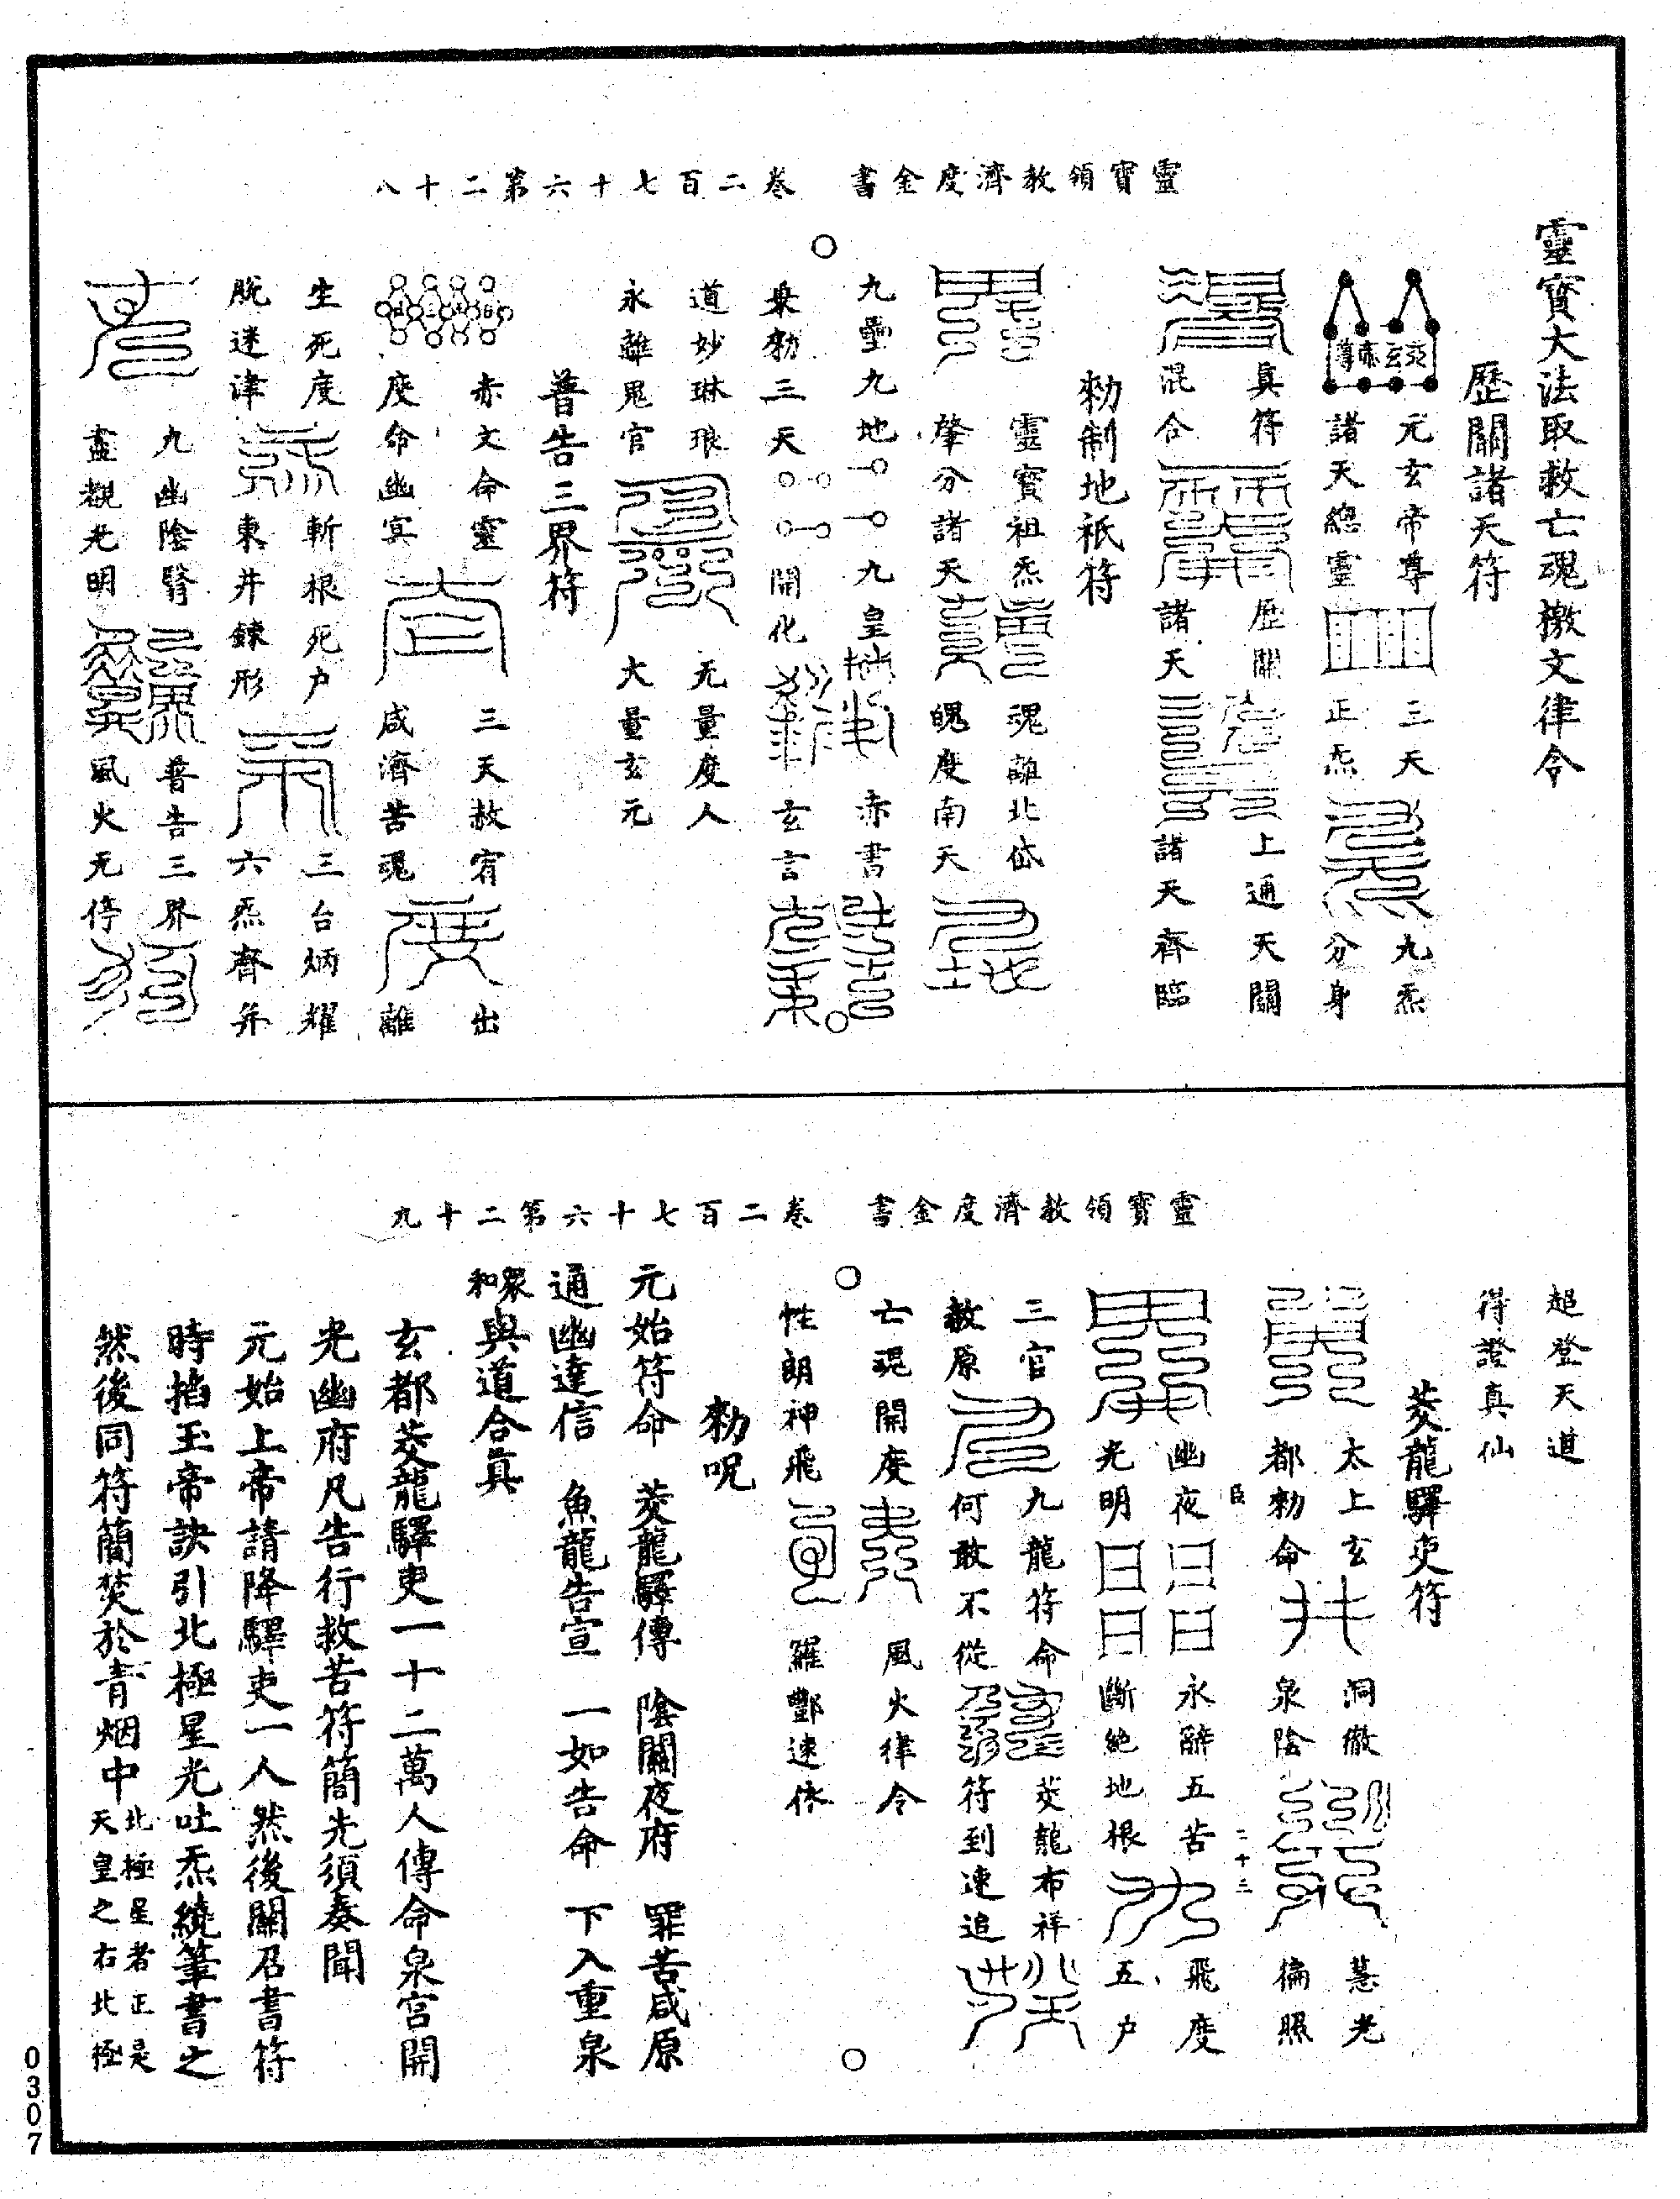 靈寶領教濟度金書　卷二百七十六第二十八
靈寶大法取救亡魂檄文律令
歷關諸天符
元玄帝尊　三天　九炁
諸天總靈　正炁　分身
真符　歷關　上通天關
混合　諸天　諸天齊臨
勑制地祇符
靈寶祖炁　魂離北岱
肇分諸天　魄度南天
九壘九地　九皇　赤書
奉勑三天　開化　玄言
道妙琳琅　无量度人
永離鬼官　大量玄元
普告三界符
赤文命靈　三天赦宥　出
度命幽冥　咸濟苦魂　離
生死度　斬根死户　三台炳耀
脫迷津　東井鍊形　六炁齊并
九幽陰翳　普告三界
盡覩光明　風火无停
靈寶領教濟度金書　卷二百七十六第二十九
超登天道
得證真仙
茭龍驛吏符
太上玄　洞徹　慧光
都勑命　泉陰　徧照
臣　二十三
幽夜　永辭五苦　飛度
光明　斷絶地根　五户
三官　九龍符命　茭龍布祥
赦原　何敢不從　符到速追
亡魂開度　風火律令
性朗神飛　羅酆速依
勑呪
元始符命　茭龍驛傳　陰關夜府　罪苦咸原
通幽達信　魚龍告宣　一如告命　下入重泉
衆和與道合真
玄都茭龍驛吏一十二萬人傳命泉宫開
光幽府凡告行救苦符簡先須奏聞
元始上帝請降驛吏一人然後關召書符
時掐玉帝訣引北極星光吐炁繞筆書之
然後同符簡焚於青烟中北極星者正是天皇之右北極
0307